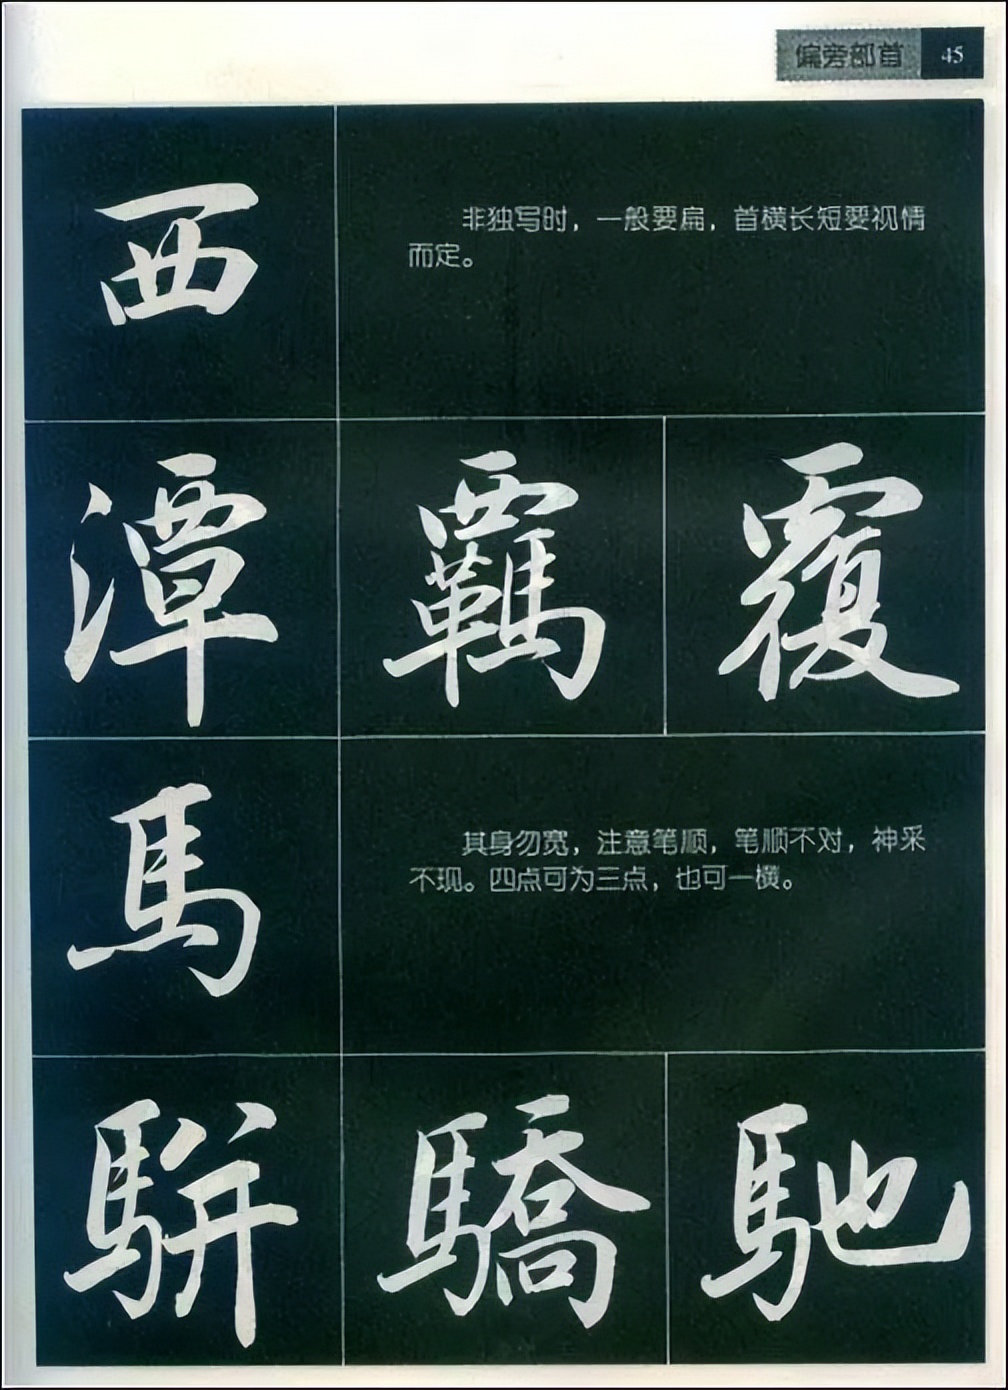 偏旁部首 45
西
非独写时，一般要扁，首横长短要视情
而定。
潭 羈 覆
馬
其身勿宽，注意笔顺，笔顺不对，神采
不现。四点可为三点，也可一横。
駢 驕 馳